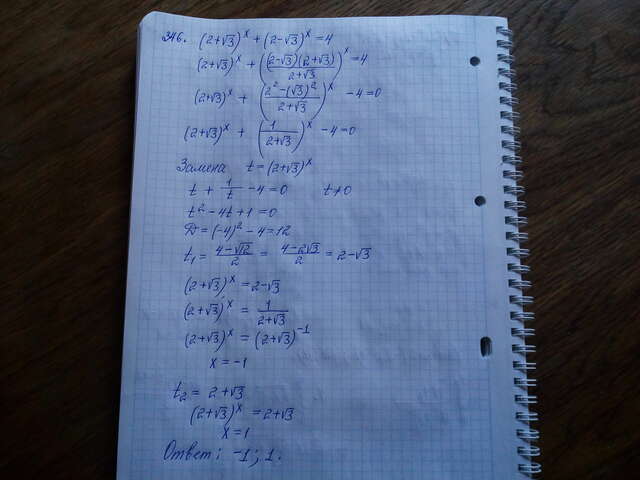 346. (2+√3)^x + (2-√3)^x = 4
(2+√3)^x + ((2-√3)(2+√3)/(2+√3))^x = 4
(2+√3)^x + ((2²-(√3)²)/(2+√3))^x - 4 = 0
(2+√3)^x + (1/(2+√3))^x - 4 = 0
Замена t = (2+√3)^x
t + 1/t - 4 = 0 t ≠ 0
t² - 4t + 1 = 0
D = (-4)² - 4 = 12
t₁ = (4-√12)/2 = (4-2√3)/2 = 2-√3
(2+√3)^x = 2-√3
(2+√3)^x = 1/(2+√3)
(2+√3)^x = (2+√3)^-1
x = -1
t₂ = 2+√3
(2+√3)^x = 2+√3
x = 1
Ответ: -1; 1.